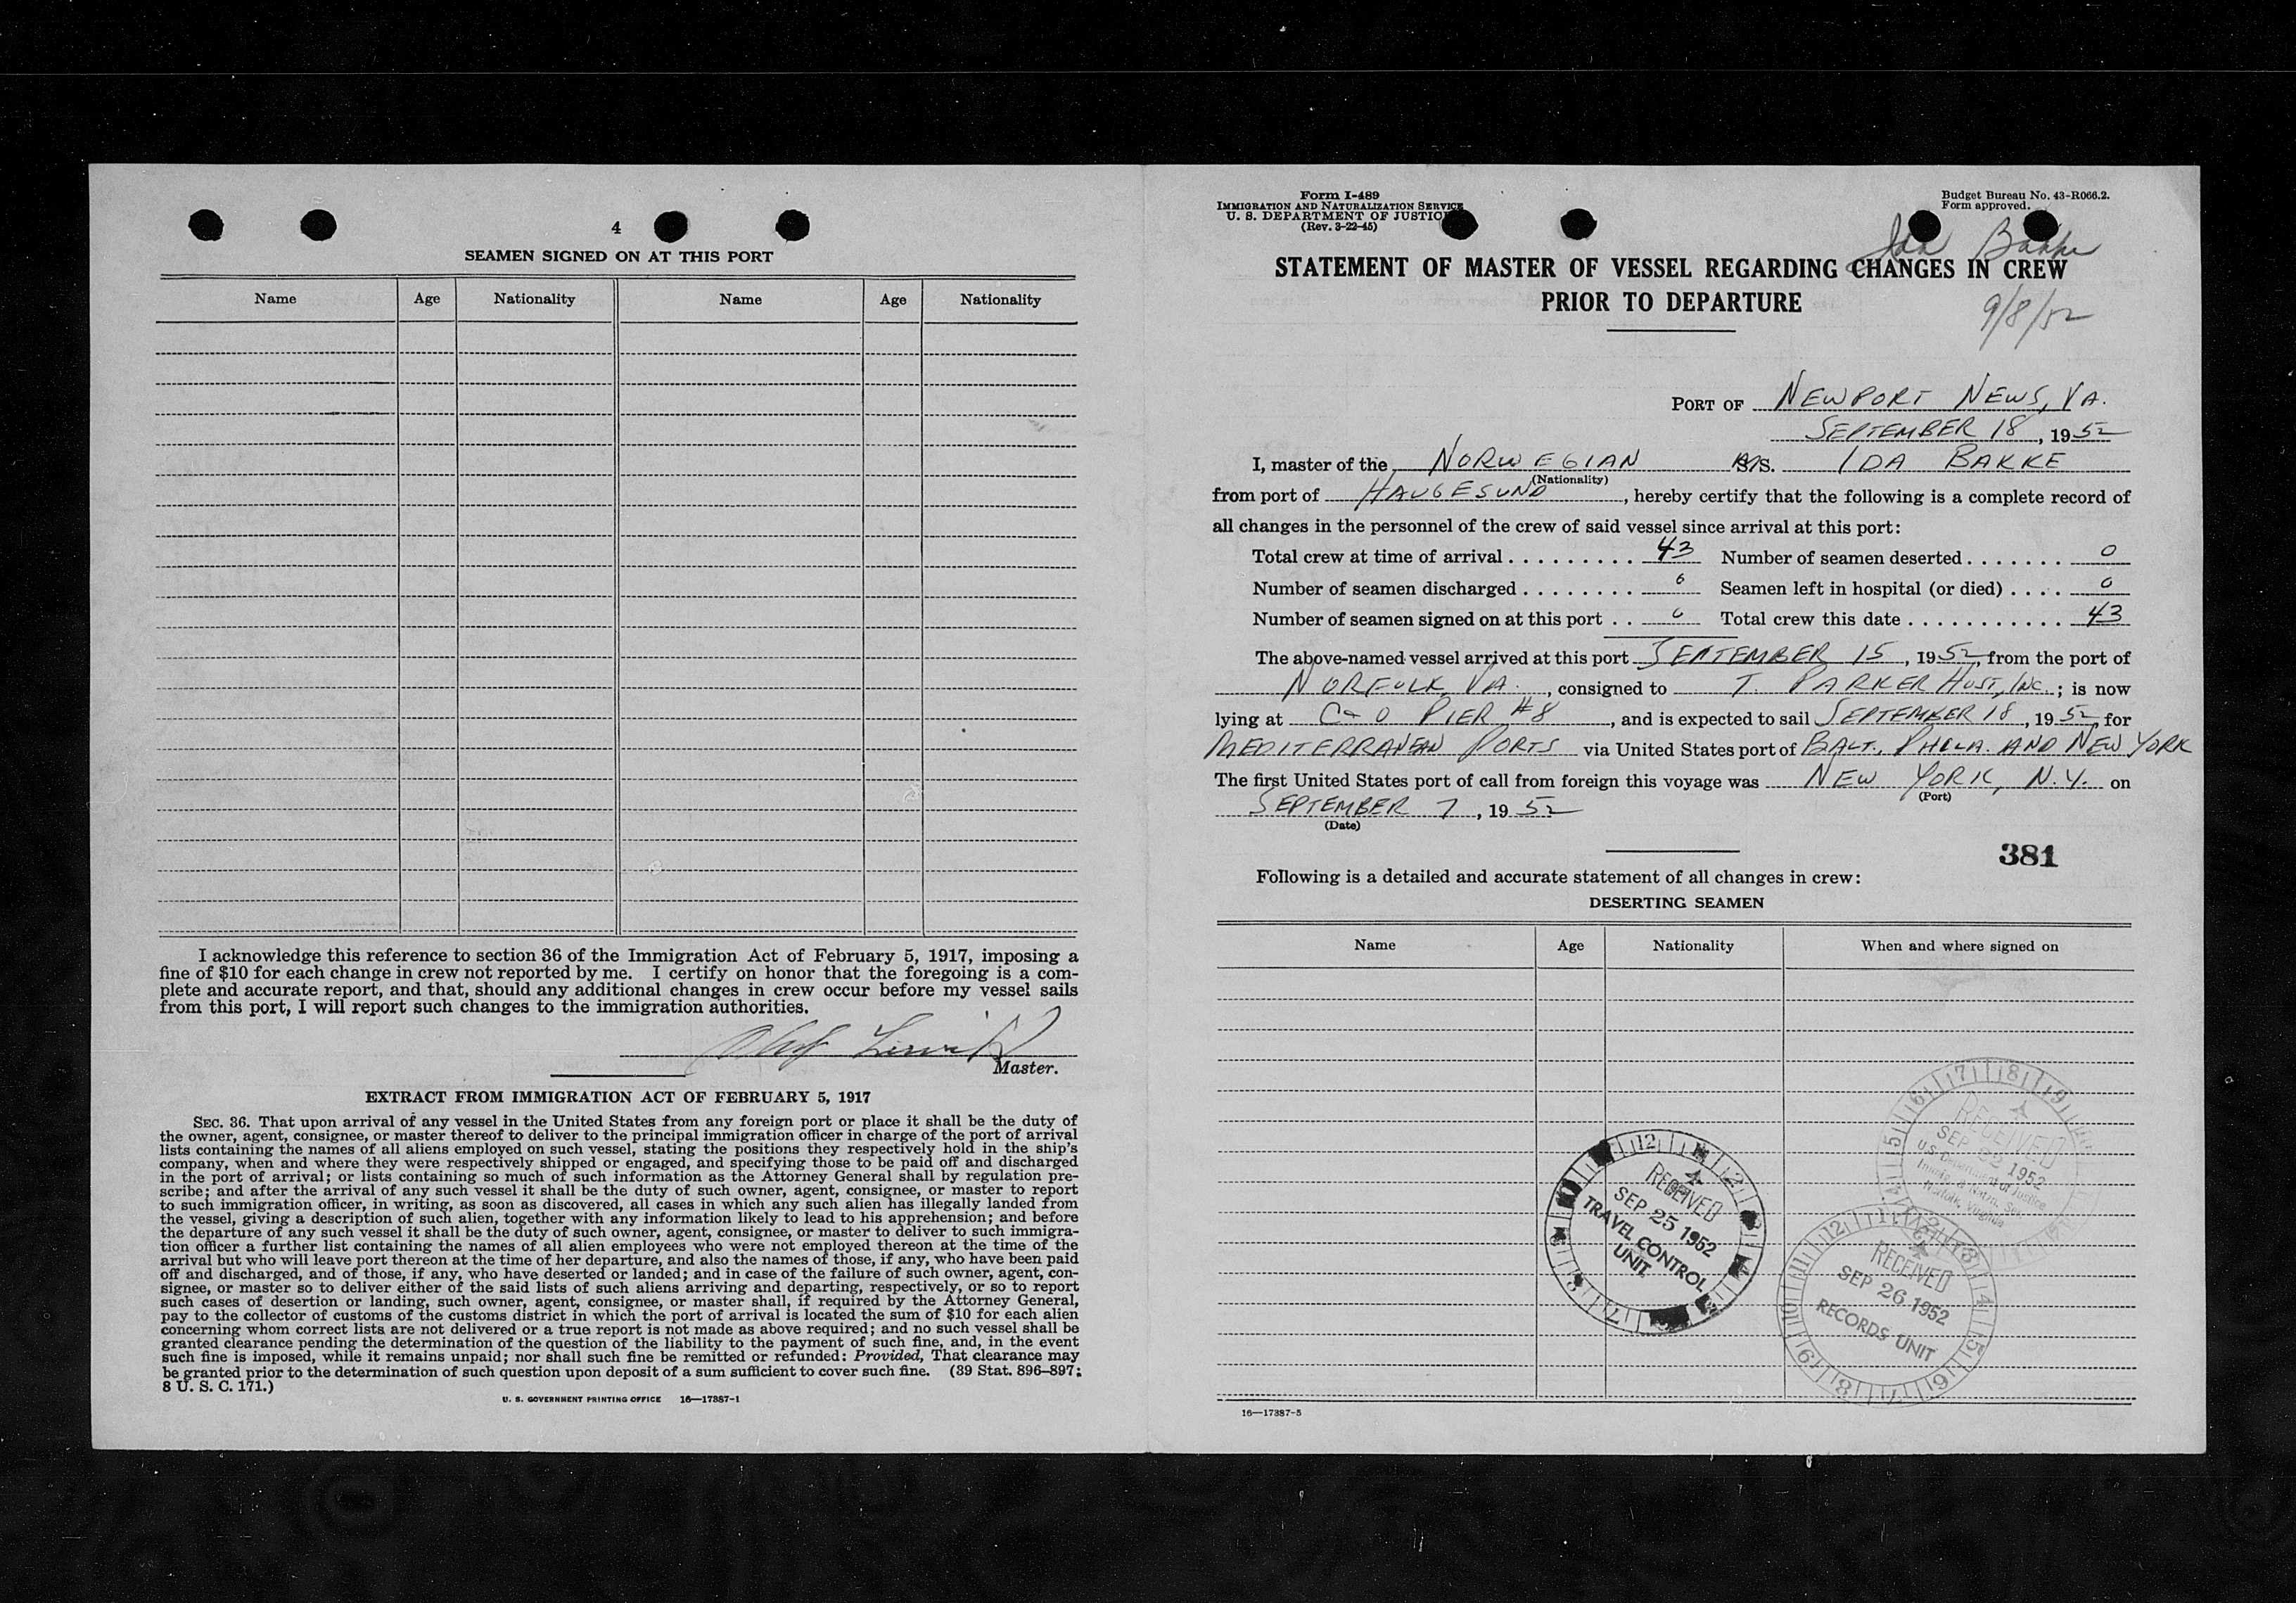 4
SEAMEN SIGNED ON AT THIS PORT
Name Age Nationality Name Age Nationality
I acknowledge this reference to section 36 of the Immigration Act of February 5, 1917, imposing a
fine of $10 for each change in crew not reported by me. I certify on honor that the foregoing is a com-
plete and accurate report, and that, should any additional changes in crew occur before my vessel sails
from this port, I will report such changes to the immigration authorities.
Master.
EXTRACT FROM IMMIGRATION ACT OF FEBRUARY 5, 1917
SEC. 36. That upon arrival of any vessel in the United States from any foreign port or place it shall be the duty of
the owner, agent, consignee, or master thereof to deliver to the principal immigration officer in charge of the port of arrival
lists containing the names of all aliens employed on such vessel, stating the positions they respectively hold in the ship's
company, when and where they were respectively shipped or engaged, and specifying those to be paid off and discharged
in the port of arrival; or lists containing so much of such information as the Attorney General shall by regulation pre-
scribe; and after the arrival of any such vessel it shall be the duty of such owner, agent, consignee, or master to report
to such immigration officer, in writing, as soon as discovered, all cases in which any such alien has illegally landed from
the vessel, giving a description of such alien, together with any information likely to lead to his apprehension; and before
the departure of any such vessel it shall be the duty of such owner, agent, consignee, or master to deliver to such immigra-
tion officer a further list containing the names of all alien employees who were not employed thereon at the time of the
arrival but who will leave port thereon at the time of her departure, and also the names of those, if any, who have been paid
off and discharged, and of those, if any, who have deserted or landed; and in case of the failure of such owner, agent, con-
signee, or master so to deliver either of the said lists of such aliens arriving and departing, respectively, or so to report
such cases of desertion or landing, such owner, agent, consignee, or master shall, if required by the Attorney General,
pay to the collector of customs of the customs district in which the port of arrival is located the sum of $10 for each alien
concerning whom correct lists are not delivered or a true report is not made as above required; and no such vessel shall be
granted clearance pending the determination of the question of the liability to the payment of such fine, and, in the event
such fine is imposed, while it remains unpaid; nor shall such fine be remitted or refunded: Provided, That clearance may
be granted prior to the determination of such question upon deposit of a sum sufficient to cover such fine. (39 Stat. 896-897;
8 U. S. C. 171.)
U. S. GOVERNMENT PRINTING OFFICE 16—17387-1
Form I-489
IMMIGRATION AND NATURALIZATION SERVICE
U. S. DEPARTMENT OF JUSTICE
(Rev. 3-22-45)
Budget Bureau No. 43-R066.2.
Form approved.
Ida Bakke
STATEMENT OF MASTER OF VESSEL REGARDING CHANGES IN CREW
PRIOR TO DEPARTURE
9/8/52
PORT OF NEWPORT NEWS, VA.
SEPTEMBER 18, 1952
I, master of the NORWEGIAN S. IDA BAKKE
(Nationality)
from port of HAUGESUND, hereby certify that the following is a complete record of
all changes in the personnel of the crew of said vessel since arrival at this port:
Total crew at time of arrival . . . . . . . . . . 43 Number of seamen deserted . . . . . . . 0
Number of seamen discharged . . . . . . . . 0 Seamen left in hospital (or died) . . . . 0
Number of seamen signed on at this port . . 0 Total crew this date . . . . . . . . . . . . 43
The above-named vessel arrived at this port SEPTEMBER 15, 1952, from the port of
NORFOLK, VA., consigned to T. PARKER HOST, INC.; is now
lying at C-O PIER #8, and is expected to sail SEPTEMBER 18, 1952, for
MEDITERRANEAN PORTS via United States port of BALT., PHILA. AND NEW YORK
The first United States port of call from foreign this voyage was NEW YORK, N.Y. on
(Port)
SEPTEMBER 7, 1952
(Date)
381
Following is a detailed and accurate statement of all changes in crew:
DESERTING SEAMEN
Name Age Nationality When and where signed on
RECEIVED
SEP 22 1952
U.S. Department of Justice
Immig. & Natzn. Ser.
Norfolk, Virginia
RECEIVED
SEP 25 1952
TRAVEL CONTROL
UNIT
RECEIVED
SEP 26 1952
RECORDS UNIT
16—17387-5